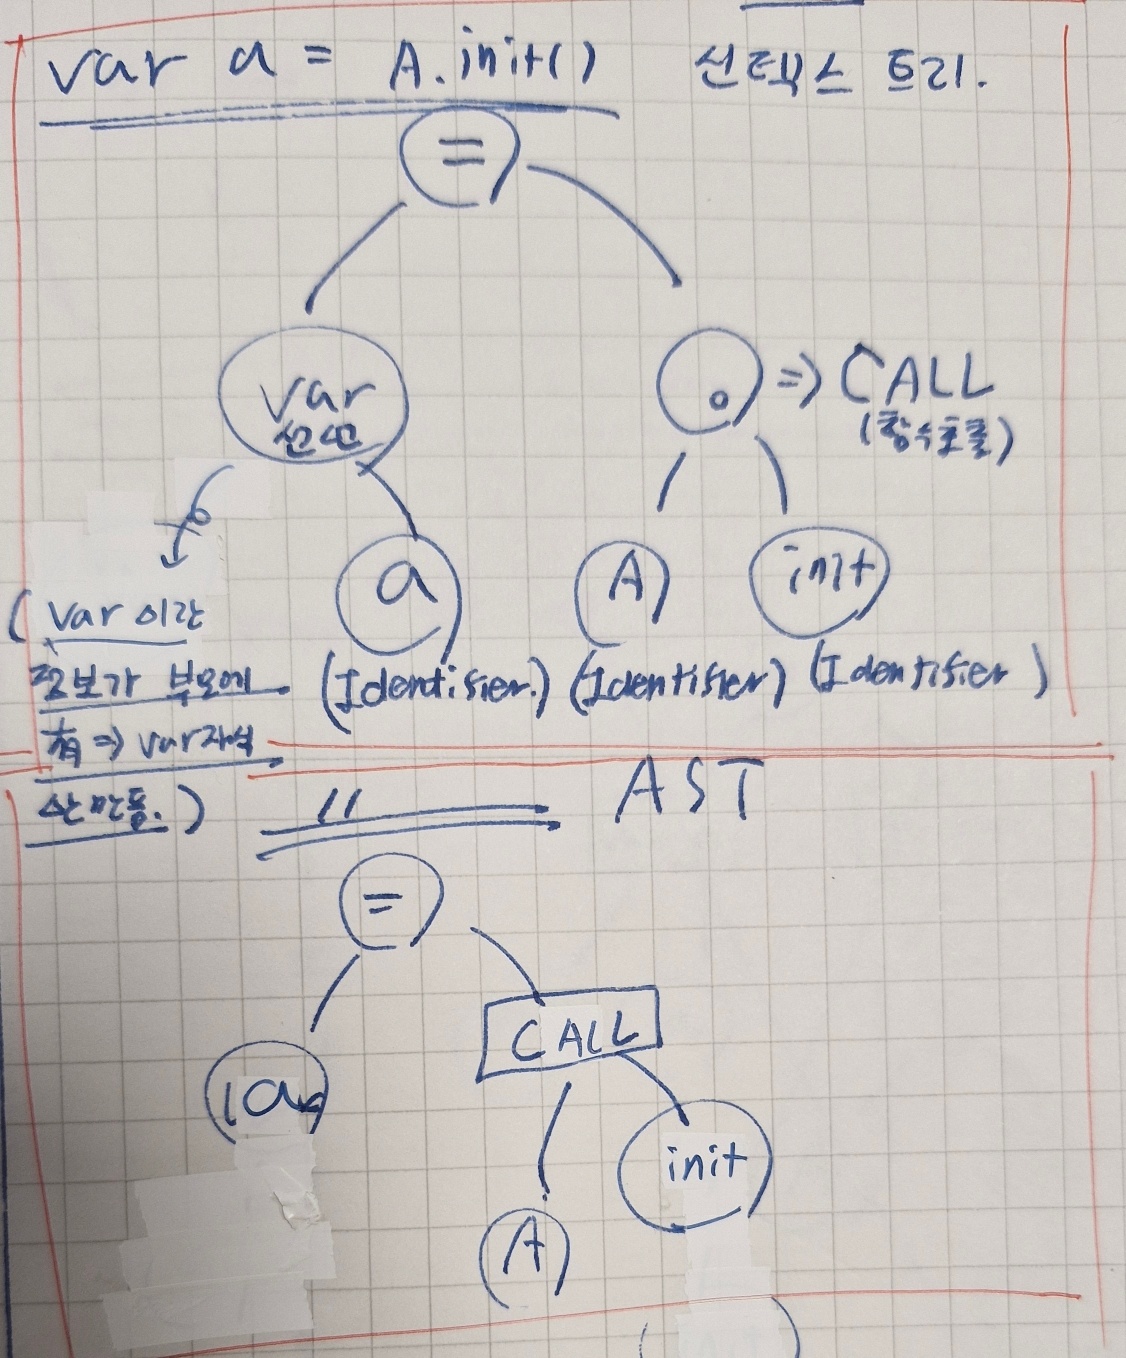 var a = A.init() 신택스 트리.
=
var
선언
. => CALL
(함수호출)
a
A
init
(Identifier.) (Identifier) (Identifier)
(var 이란
정보가 부모에
有 => var 자식
안 만듦.)
〃 AST
=
a
CALL
init
A